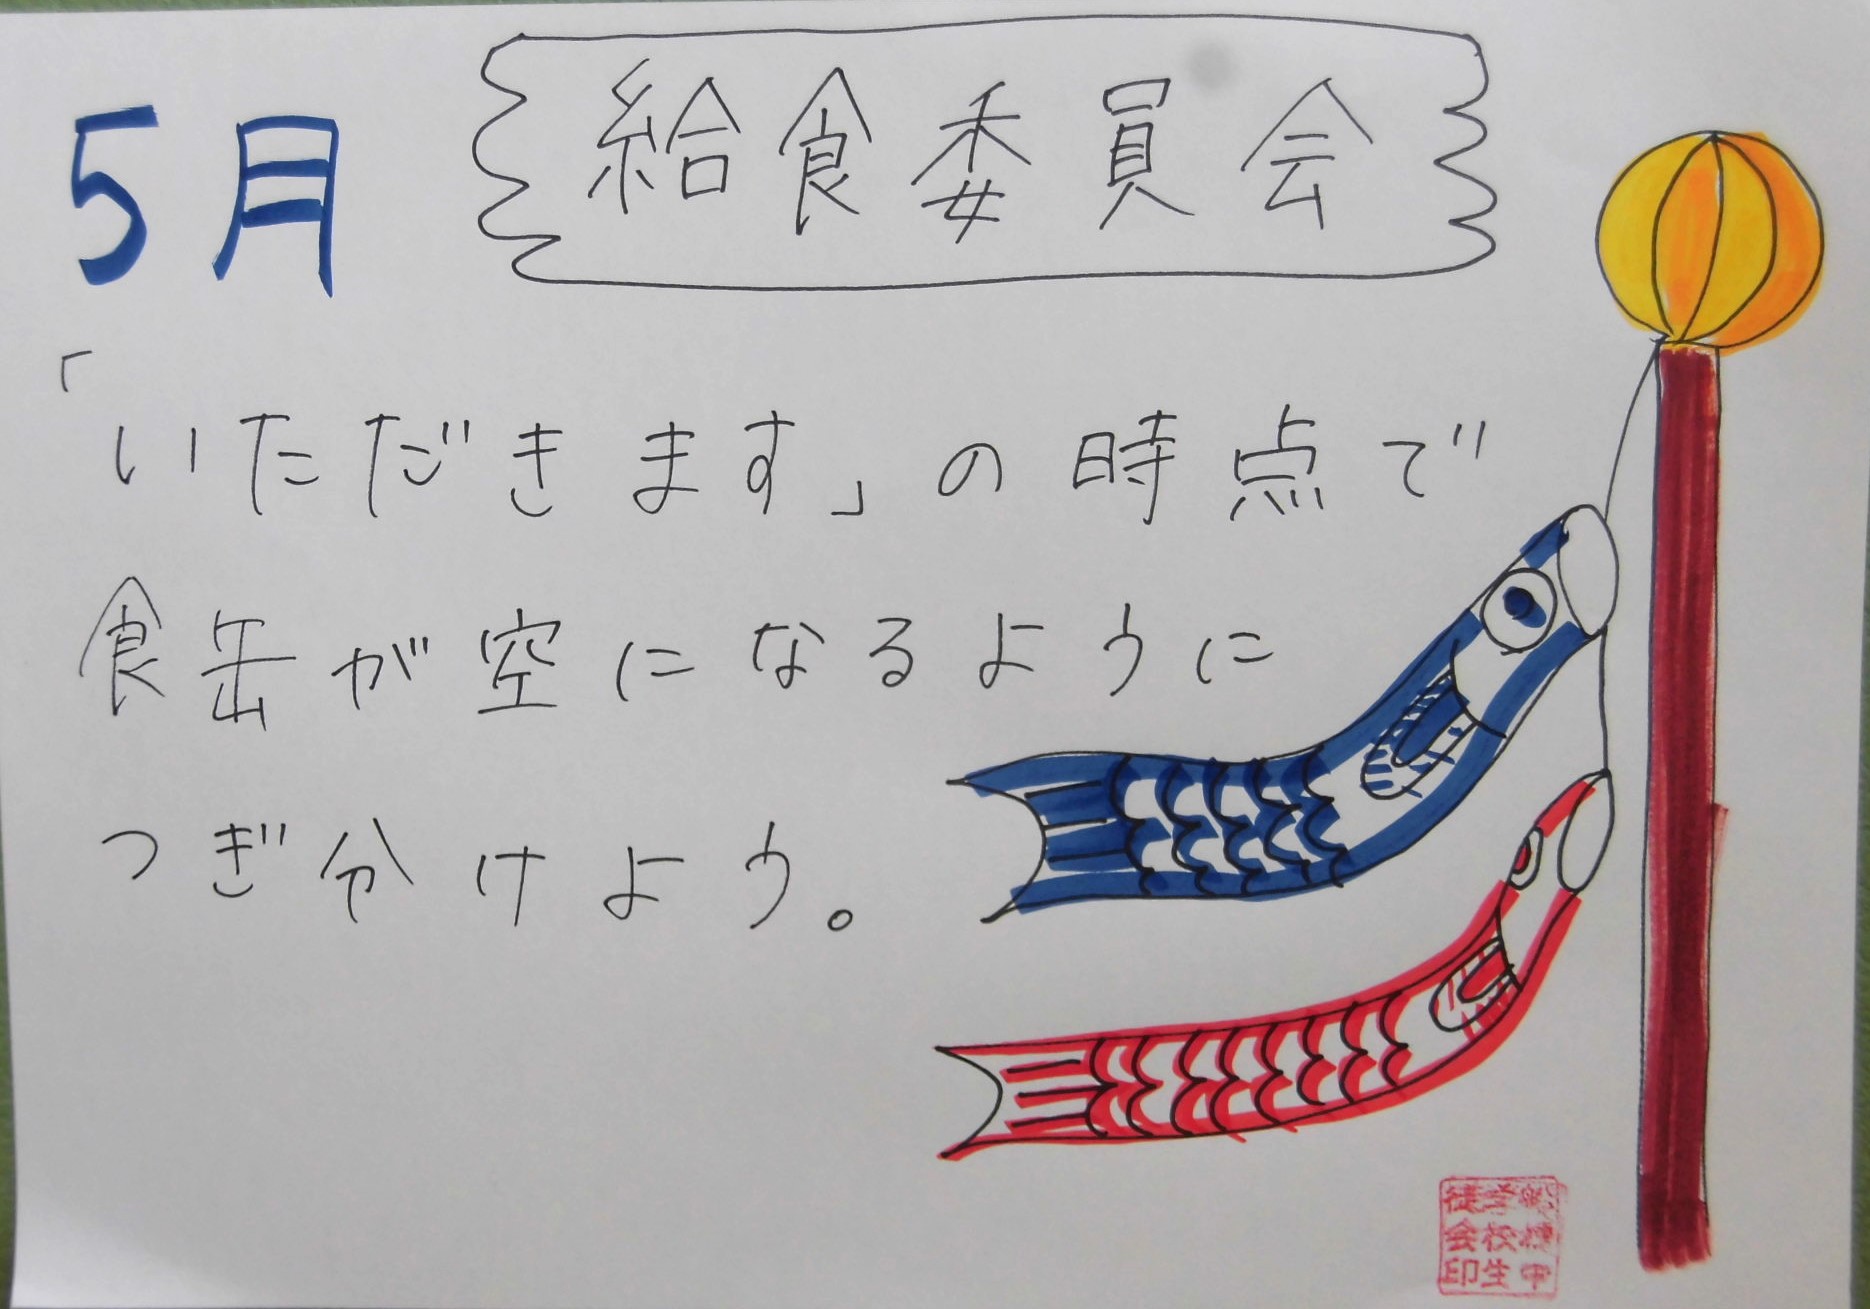 5月
給食委員会
「いただきます」の時点で
食缶が空になるように
つぎ分けよう。
学校生
徒会印